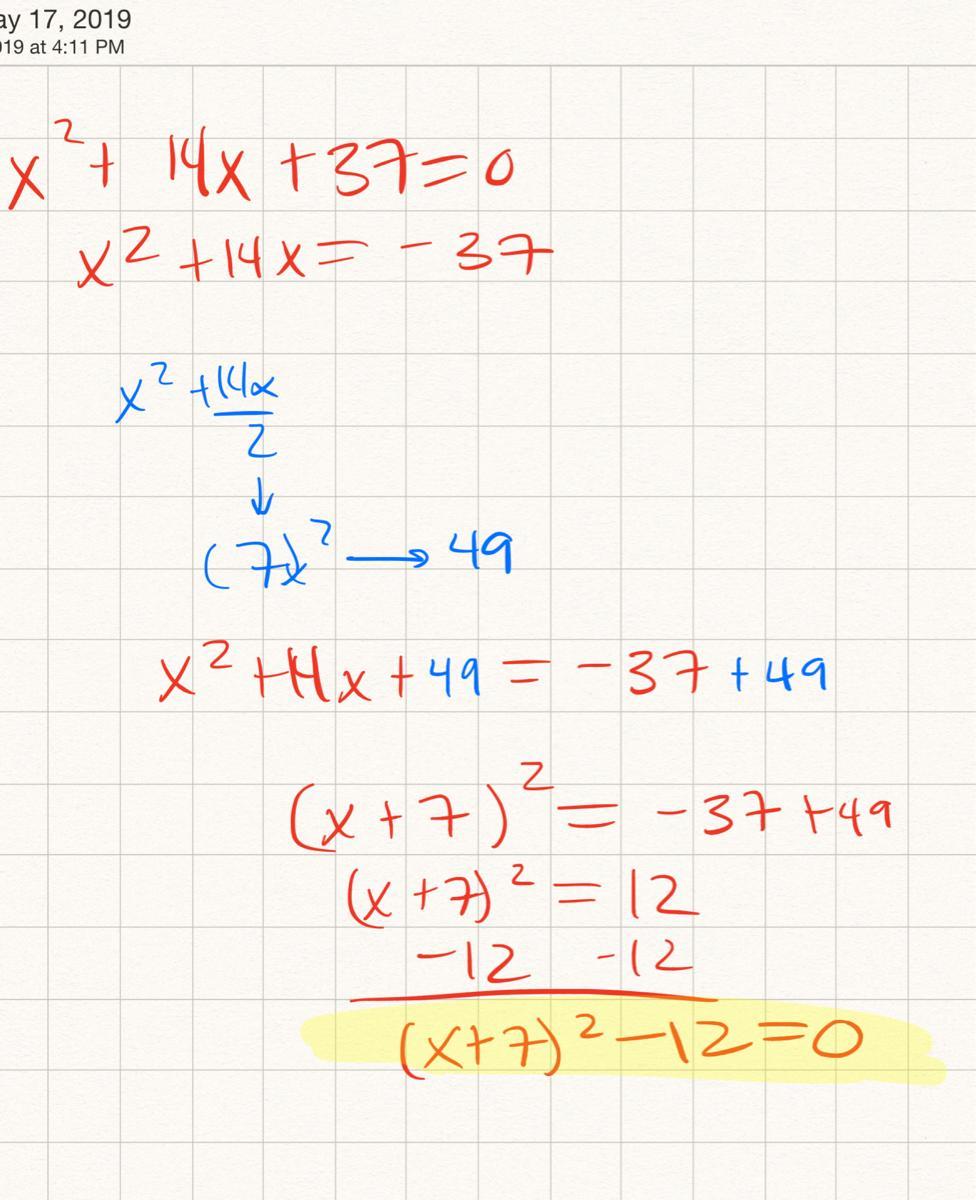 ay 17, 2019
019 at 4:11 PM
x² + 14x + 37 = 0
x² + 14x = - 37
x² + 14x
2
↓
(7)² → 49
x² + 14x + 49 = - 37 + 49
(x + 7)² = - 37 + 49
(x + 7)² = 12
- 12 - 12
(x + 7)² - 12 = 0